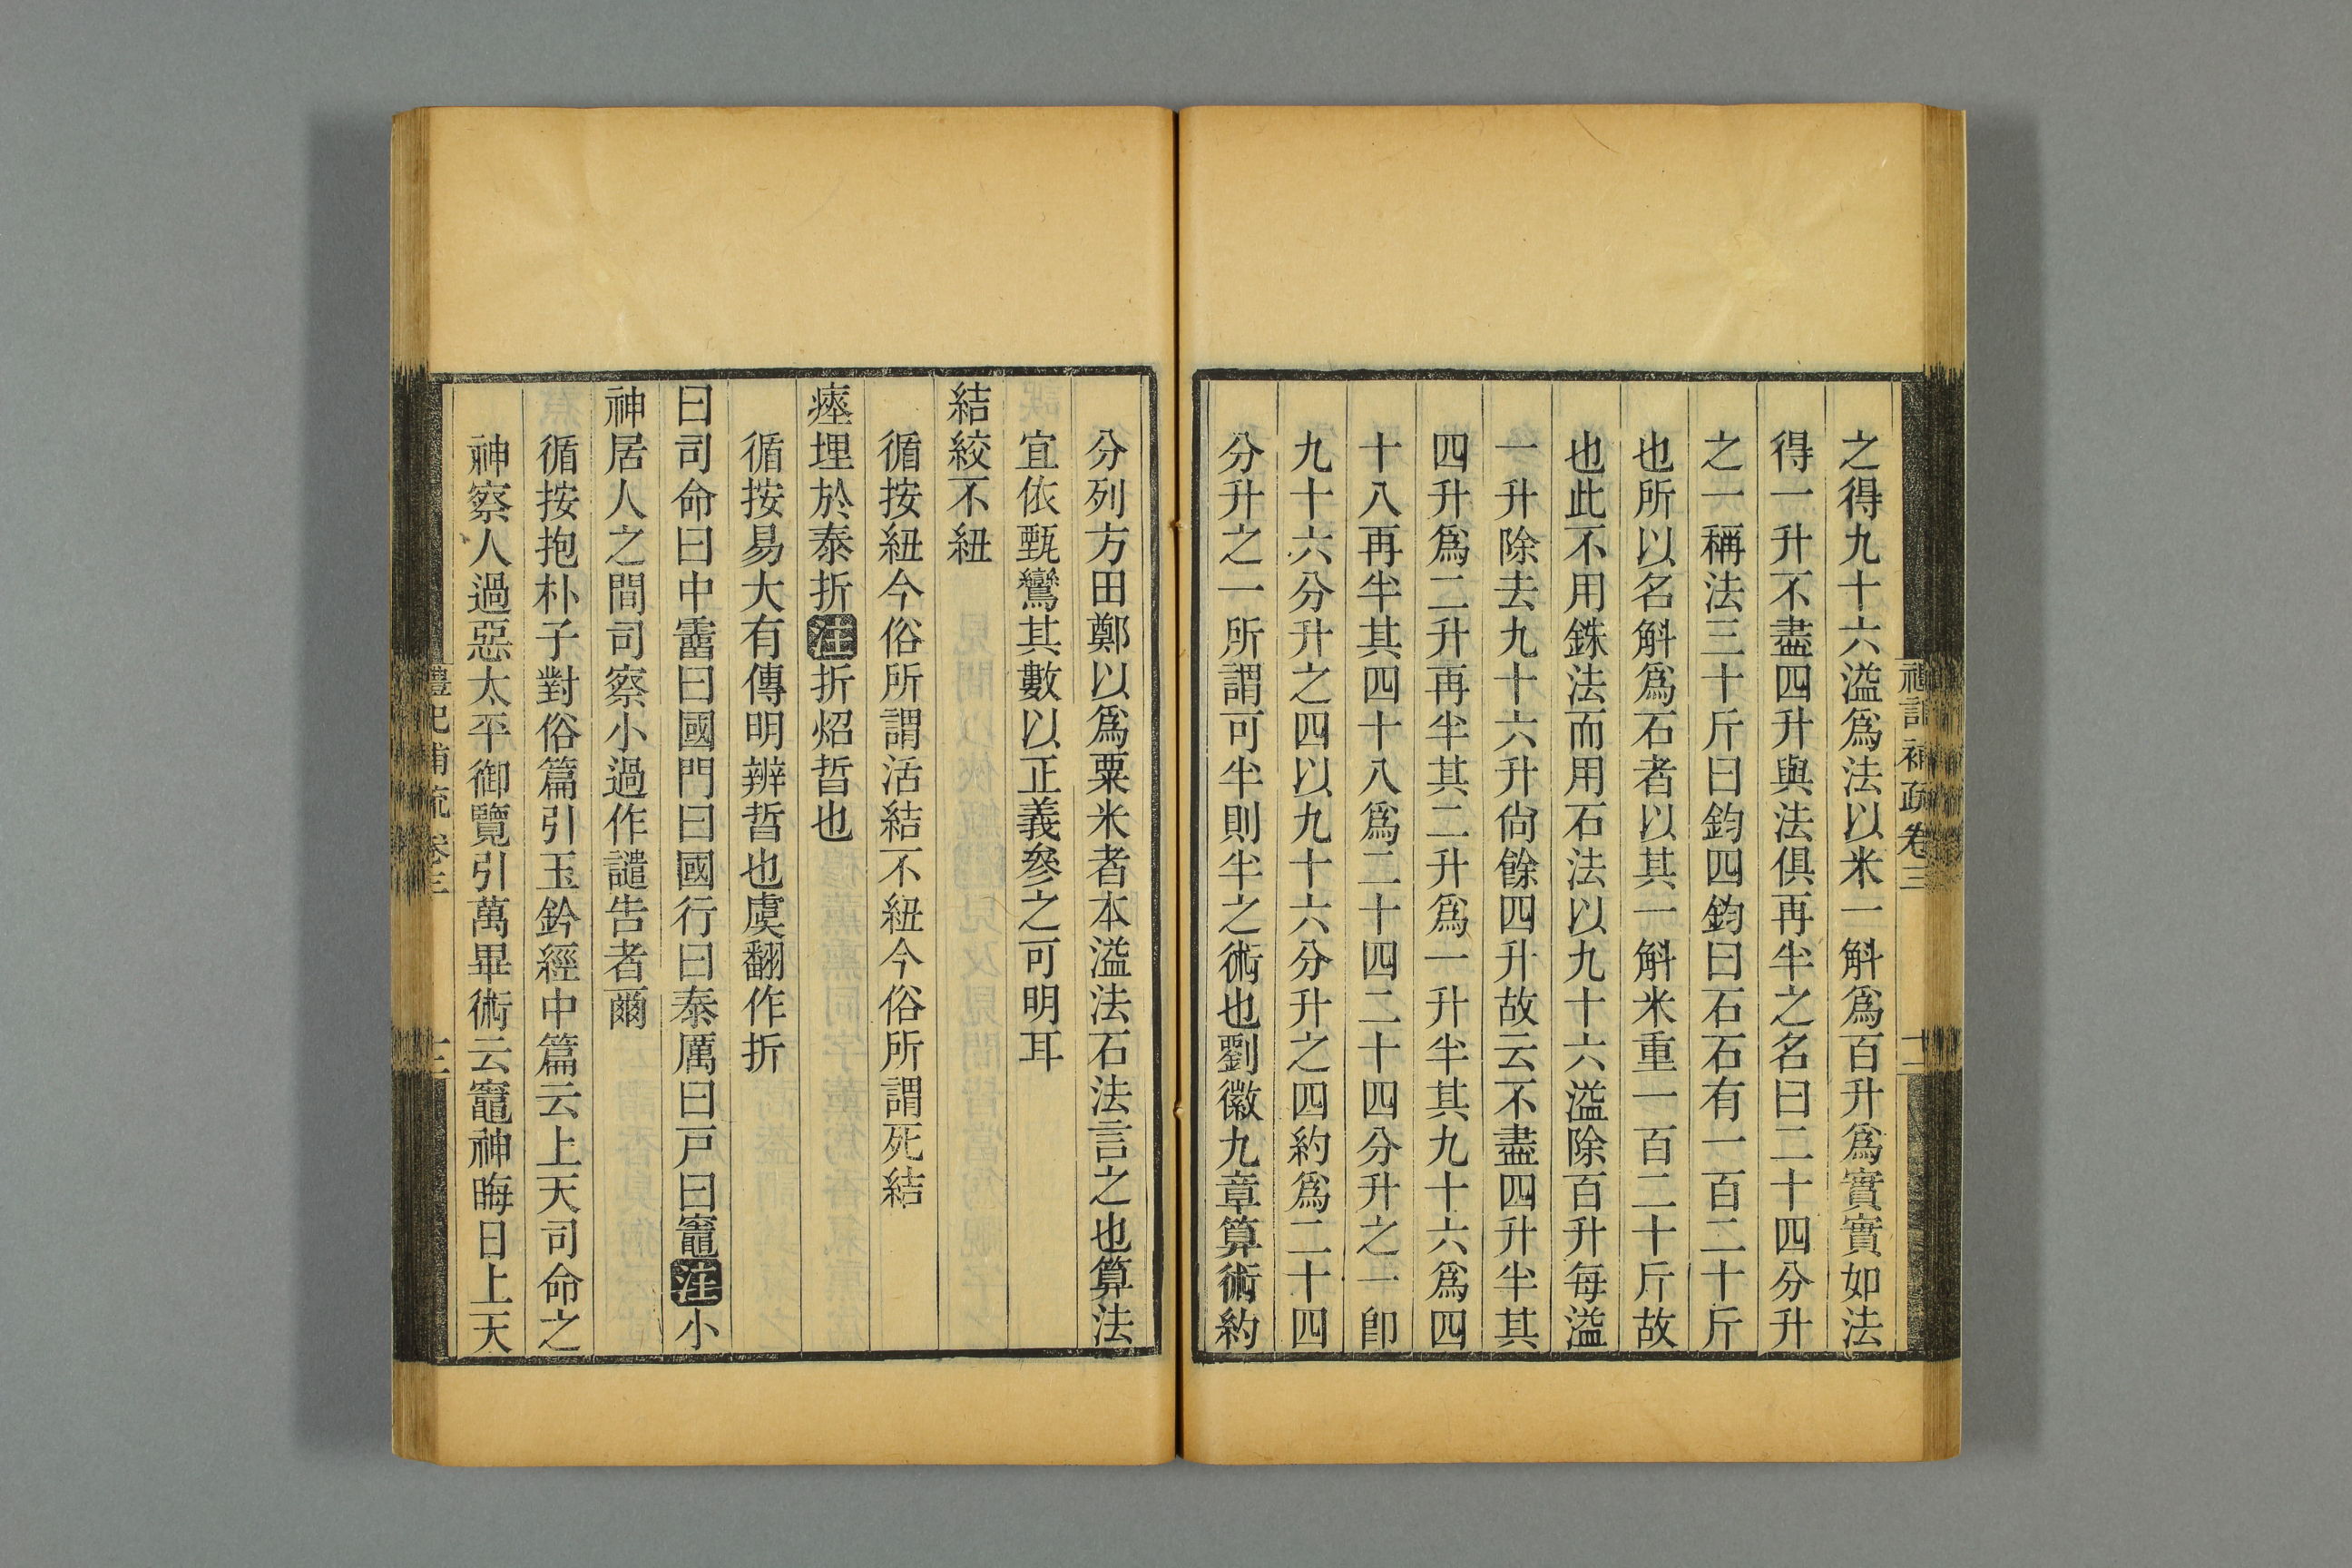 禮記補疏卷三
十二
之得九十六溢爲法以米一斛爲百升爲實實如法
得一升不盡四升與法俱再半之名曰二十四分升
之一稱法三十斤曰鈞四鈞曰石石有一百二十斤
也所以名斛爲石者以其一斛米重一百二十斤故
也此不用銖法而用石法以九十六溢除百升每溢
一升除去九十六升尙餘四升故云不盡四升半其
四升爲二升再半其二升爲一升半其九十六爲四
十八再半其四十八爲二十四二十四分升之一卽
九十六分升之四以九十六分升之四約爲二十四
分升之一所謂可半則半之術也劉徽九章算術約
分列方田鄭以爲粟米者本溢法石法言之也算法
宜依甄鸞其數以正義參之可明耳
結絞不紐
循按紐今俗所謂活結不紐今俗所謂死結
瘞埋於泰折注折炤晢也
循按易大有傳明辨晢也虞翻作折
曰司命曰中霤曰國門曰國行曰泰厲曰戸曰竈注小
神居人之間司察小過作譴告者爾
循按抱朴子對俗篇引玉鈐經中篇云上天司命之
神察人過惡太平御覽引萬畢術云竈神晦日上天
禮記補疏卷三